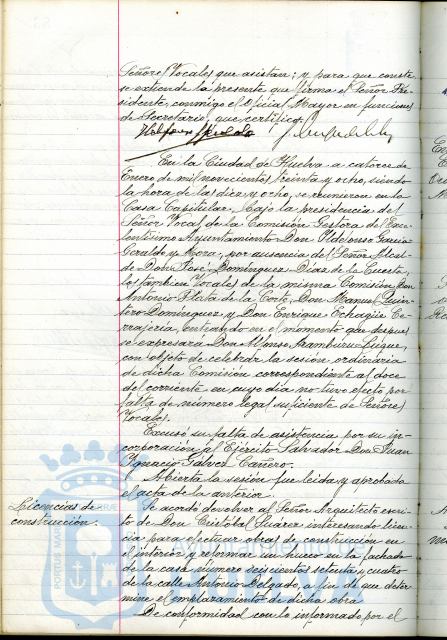 Señores Vocales que asistan; y para que conste
se extiende la presente que firma el Señor Pre-
sidente, conmigo el Oficial Mayor en funciones
de Secretario, que certifico.
En la Ciudad de Huelva a catorce de
Enero de mil novecientos treinta y ocho, siendo
la hora de las diez y ocho, se reunieron en la
Casa Capitular, bajo la presidencia del
Señor Vocal de la Comisión Gestora del Exce-
lentísimo Ayuntamiento Don Ildefonso Garcia
Geraldo y Mora, por ausencia del Señor Alcal-
de Don José Dominguez Diaz de la Cuesta,
los tambien Vocales de la misma Comisión Don
Antonio Plata de la Corte, Don Manuel Quin-
tero Dominguez, y Don Enrique Echagüe Ce-
rrajería, entrando en el momento que despues
se expresara Don Alfonso Aramburu Luque,
con objeto de celebrar la sesión ordinaria
de dicha Comisión correspondiente al doce
del corriente en cuyo dia no tuvo efecto por
falta de número legal suficiente de Señores
Vocales.
Excusó su falta de asistencia por su in-
corporación al Ejército Salvador Don Juan
Ignacio Gálvez Cañero.
Abierta la sesión fue leida y aprobada
el acta de la anterior.
Licencias de
construcción.
Se acordó devolver al Señor Arquitecto escri-
to de Don Cristóbal Suárez interesando licen-
cia para efectuar obras de construcción en
el interior y reformar un hueco en la fachada
de la casa número seiscientos setenta y cuatro
de la calle Antonio Delgado, a fin de que deter-
mine el emplazamiento de dicha obra.
De conformidad con lo informado por el